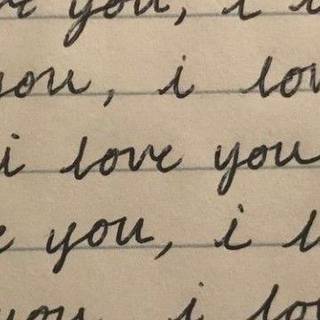 you, i
you, i lov
i love you
you, i l
you, i lov